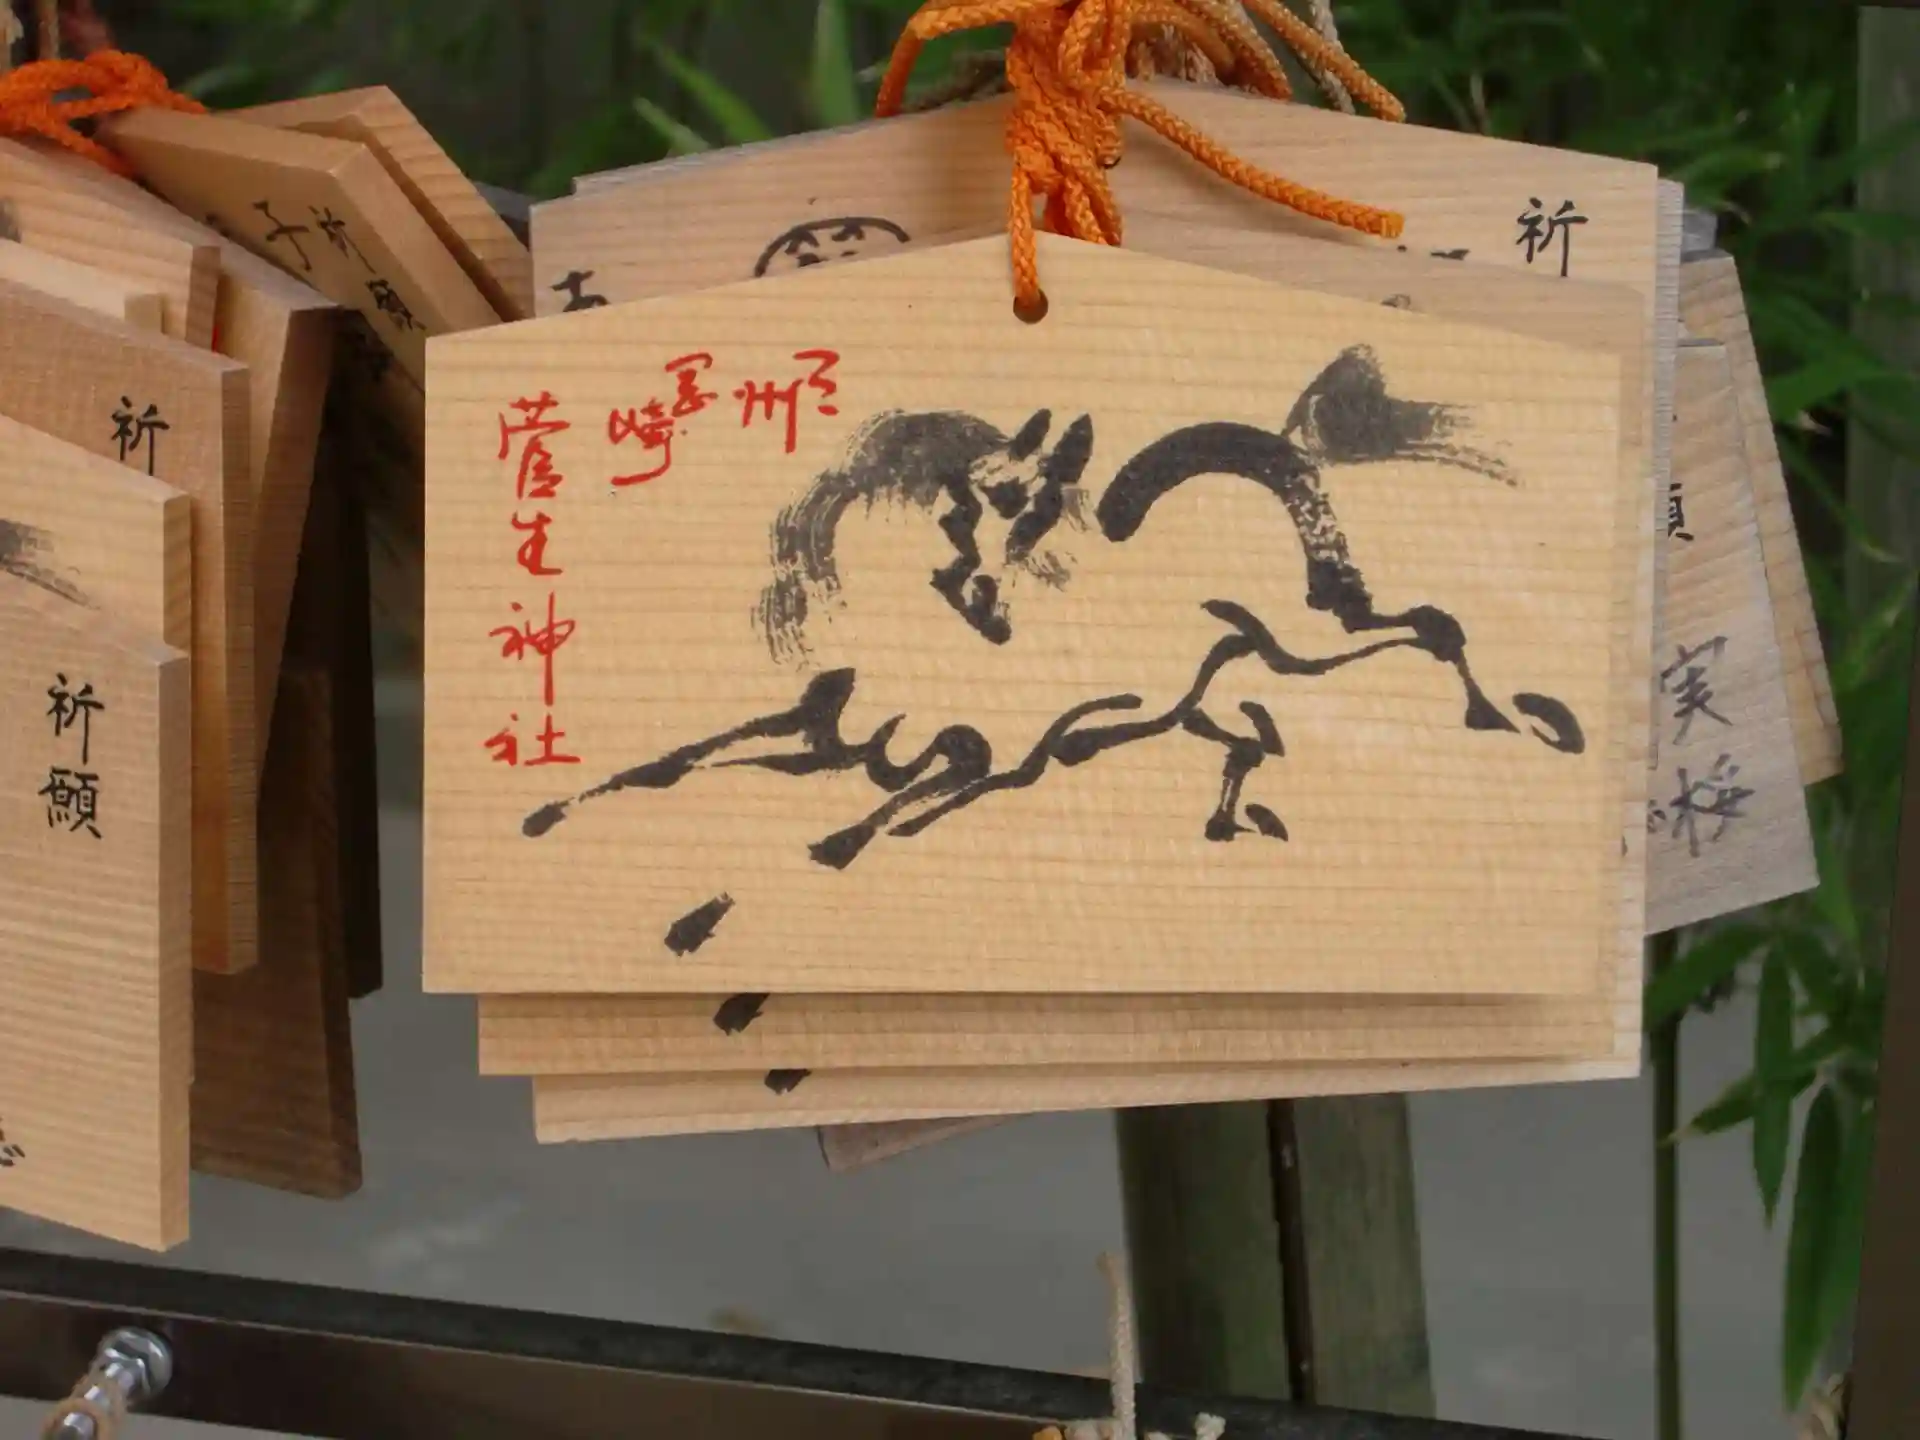 三州
岡崎
菅生神社
祈
祈願
子
祈
祈願
願
実
桜